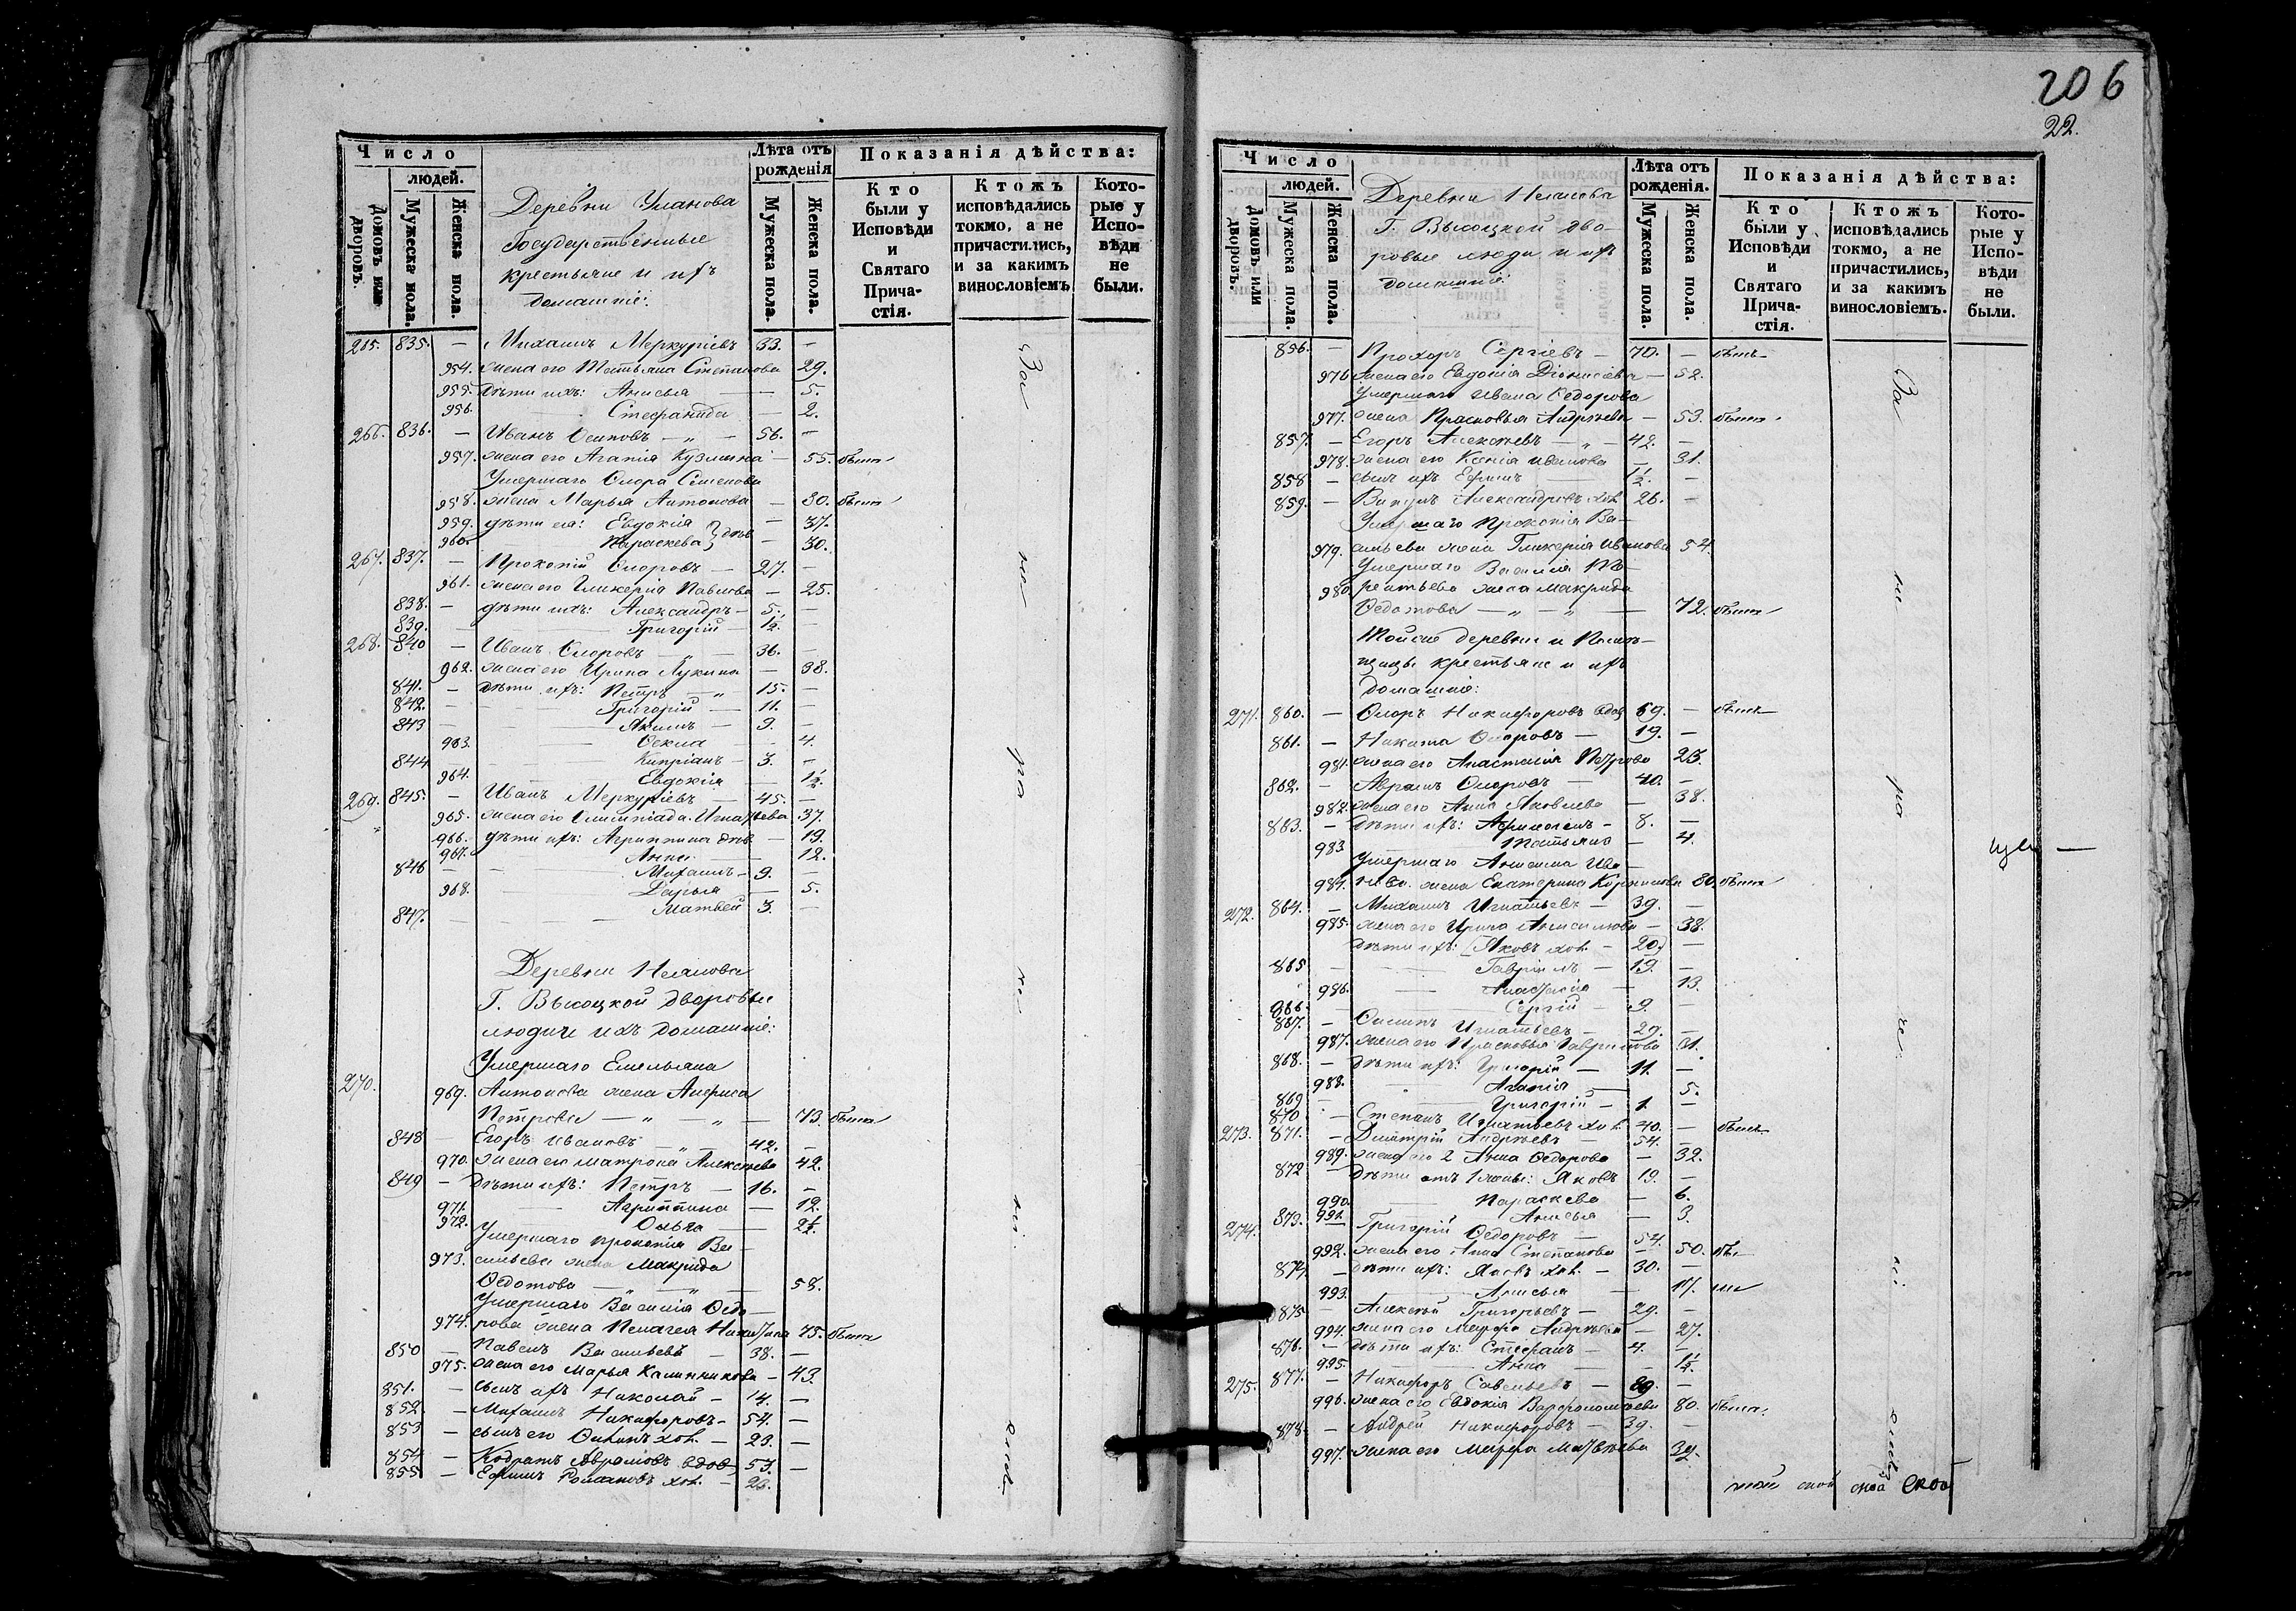 206
22.
Число
людей.
Домовъ или дворовъ.
Мужеска пола.
Женска пола.
Деревни Уланова
Государственные
крестьяне и ихъ
домашніе:
Лѣта отъ рожденія
Мужеска пола.
Женска пола.
Показанія дѣйства:
Кто были у Исповѣди и Святаго Прича-стія.
Ктожъ исповѣдались токмо, а не причастились, и за какимъ винословіемъ
Кото-рые у Испо-вѣди не были.
265. 835. — Михаилъ Меркуріевъ 33. —
954. жена его Татьяна Степанова 29.
955. дѣти ихъ: Анисья — 5.
956. Стефанида — 2.
266. 836. — Иванъ Осиповъ — „ — 56. —
957. жена его Агапія Кузмина — 55. была
Умершаго Флора Семенова
958. жена Марья Антонова — 80. была
959. дѣти ея: Евдокія — 37.
960. Параскева — 30.
267. 837. — Прокопій Флоровъ — 27. —
961. жена его Гликерія Павлова — 25.
838. — дѣти ихъ: Александръ — 5. —
839. — Григорій — 1½. —
268. 840 — Иванъ Флоровъ 36. —
962. жена его Ирина Лукина — 38.
841. — дѣти ихъ: Петръ — „ 15. —
842. — Григорій — 11. —
843 — Якимъ — 9. —
963. Фекла — 4.
844 — Кипріанъ — 3. —
964. Евдокія — 1½
269. 845. — Иванъ Меркуріевъ — 45. —
965. жена его Олимпіада Игнатьева 37.
966. дѣти ихъ: Агриппина дѣв. — 19.
967. Анна — 12.
846 — Михаилъ — 9. —
968. Дарья — 5.
847. Матвей 3. —
Деревни
Г. Высоцкой дворовые
люди и ихъ домашніе:
Умершаго Емельяна
270. 969. Антонова жена Анфиса
Петрова — „ — „ — 73 была
848 — Егоръ Ивановъ — „ — 42. —
970. жена его Матрона Алексѣева 42.
849 — дѣти ихъ: Петръ — 16. —
971. Агриппина — 12.
972. Ольга — 2½.
Умершаго Прокопія Ва-
973. сильева жена Макрида
Федотова — 58.
Умершаго Василія Федо-
974. рова жена Пелагея Никитина 75. была
850 — Павелъ Васильевъ — 38. —
975. жена его Марья Калинникова — 43.
851. — сынъ ихъ Николай — 14. —
852. — Михаилъ Никифоровъ — 54. —
853 — сынъ его Филипъ хол. — 23. —
854 — Кодратъ Аврамовъ вдов. 53. —
855 — Ефимъ Романовъ хол. — 26.
За
не
ра
Число
людей.
Домовъ или дворовъ.
Мужеска пола.
Женска пола.
Деревни
Г. Высоцкой дво-
ровые люди и ихъ
домашніе
Лѣта отъ рожденія.
Мужеска пола.
Женска пола.
Показанія дѣйства:
Кто были у Исповѣди и Святаго Прича-стія.
Ктожъ исповѣдались токмо, а не причастились, и за какимъ винословіемъ.
Кото-рые у Испо-вѣди не были.
856. — Прохоръ Сергіевъ — 70. — былъ
976 жена его Евдокія Діонисіева — 52.
Умершаго Ивана Федорова
977. жена Прасковья Андрѣева — 53. была
857. — Егоръ Алексѣевъ — „ — 42. —
978. жена его Ксенія Иванова — 31.
858 — сынъ ихъ Ефимъ 1½. —
859. — Викулъ Александровъ хол. 26. —
Умершаго Прокопія Ва-
979. сильева жена Гликерія Иванова 54.
Умершаго Василія Те-
980. рентьева жена Макрида
Федотова — „ — „ — 72. была
Тойже деревни и Помѣ-
щицы крестьяне и ихъ
домашніе:
271. 860. — Флоръ Никифоровъ вдов. 69. — былъ
861. — Никита Флоровъ — 19. —
981. жена его Анастасія Петрова 23.
862. — Аврамъ Флоровъ — 40. —
982. жена его Анна Яковлева — 38.
863. — дѣти ихъ: — 8. —
983 Татьяна — 4.
Умершаго Анисима Ива-
984. нова жена Екатерина Корнилова 80. была
272. 864. — Михаилъ Игнатьевъ — 39. —
985. жена его Ирина Анисимова — 38.
дѣти ихъ: Яковъ хол. — 20. —
865 — Гавріилъ — 19. —
986. Анастасія — 13.
866. — Сергій — 9. —
867. — Осипъ Игнатьевъ — 29. —
987. жена его Прасковья Гаврилова 31.
868. — дѣти ихъ: Григорій — 11. —
988. Агапія — 5.
869 — Григорій — 1. —
870 — Степанъ Игнатьевъ хол. 40. — былъ
273. 871. — Дмитрій Андрѣевъ — 54. —
989. жена его 2 Анна Федорова — 32.
872 — дѣти отъ 1 жены: Яковъ 19. —
990. Параскева — 6.
873. 991. Анисья — 3.
274. Григорій Федоровъ — 54. —
992. жена его Анна Степанова — 50.
874. — дѣти ихъ: Яковъ хол. — 30. —
993. Анисья — 17.
875 — Алексѣй Григорьевъ — 29. —
994. жена его Марфа Андрѣева — 27.
876. — дѣти ихъ: Стефанъ — 4. —
995. Анна — 1½.
275. 877. — Никифоръ Савельевъ — 89. —
996. жена его Евдокія Варфоломеева 80. была.
878. — Андрей Никифоровъ — 39. —
997. жена его Марфа Матвѣева 39.
За
не
ра